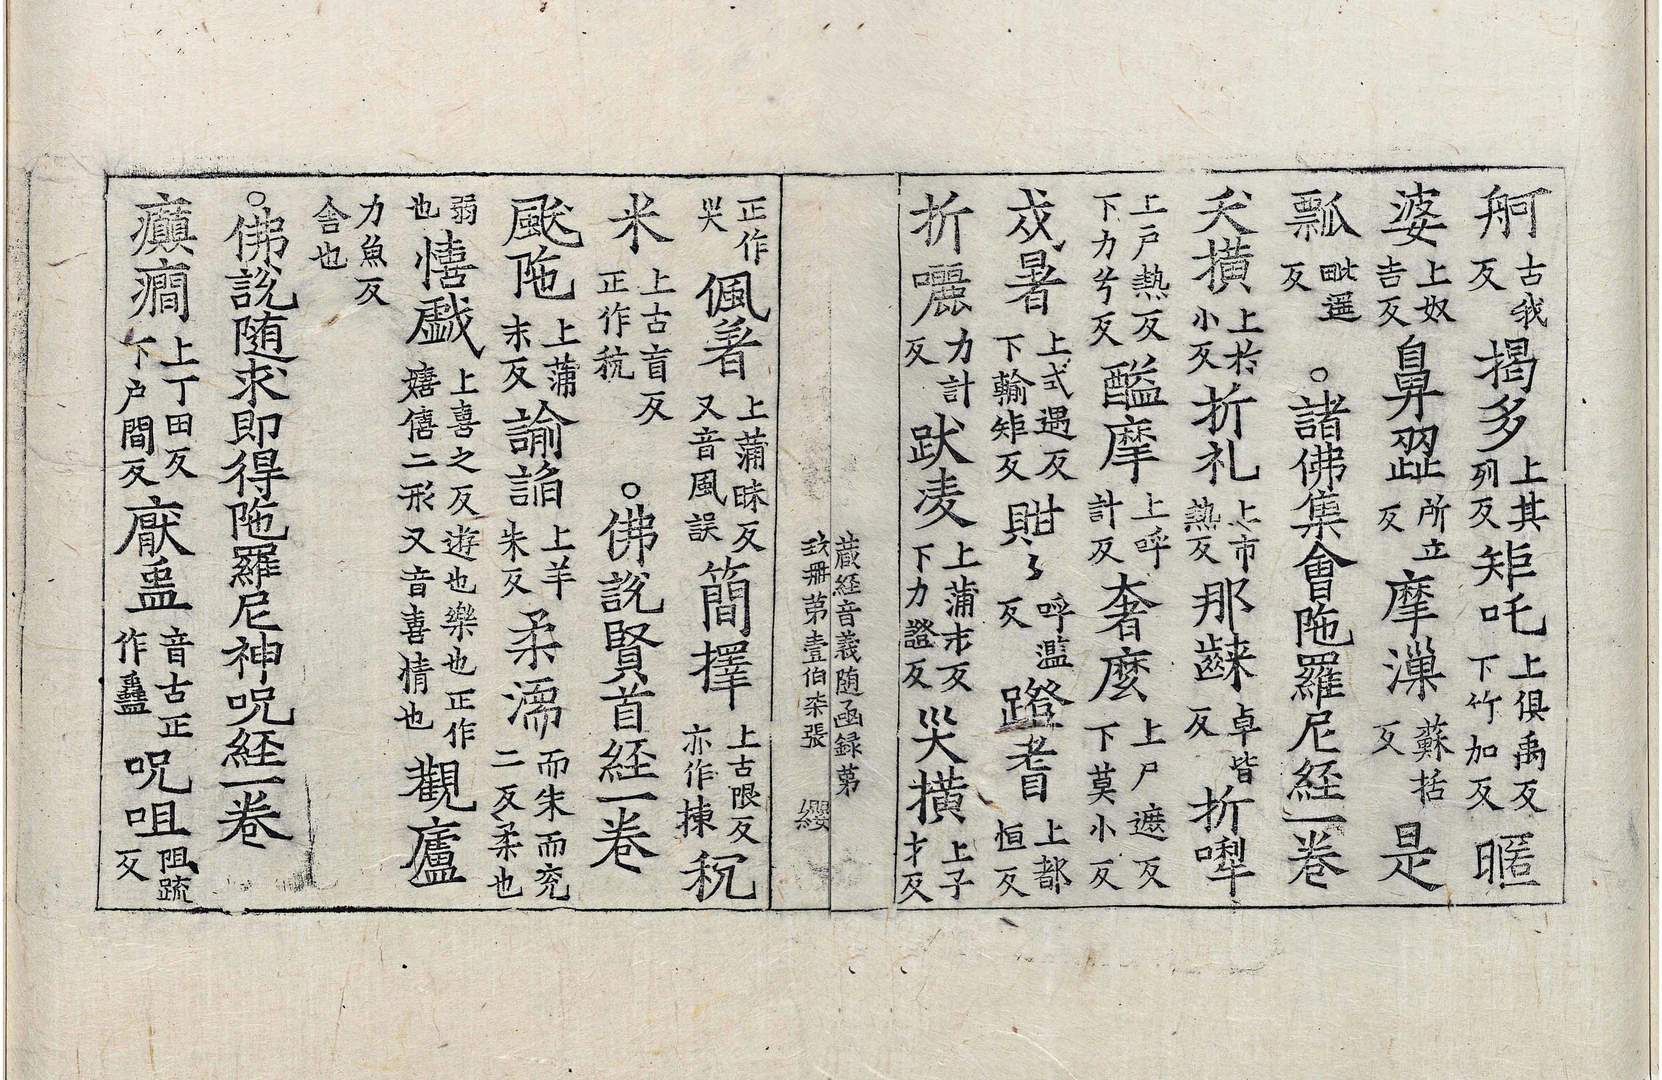 舸古我反揭多上其列反矩吒上俱禹反下竹加反暱
婆上奴吉反鼻歰所立反摩漅蘇括反是
瓢毗遥反○諸佛集會陁羅尼經一卷
夭撗上於小反折礼上市熱反那䶚卓皆反折㘑
上戸熱反下力兮反䤈摩上呼計反奢麼上尸遮反下莫小反
戍暑上式遇反下輸矩反㽏〻呼濫反蹬耆上都恒反
折㘑力計反跋凌上蒲末反下力證反災撗上子才反
藏经音義随函録苐玖冊苐壹伯柒張 纓
正作災佩著上蒲昧反又音風誤簡擇上古限反亦作揀䅏
米上古盲反正作秔○佛說賢首經一卷
颰陁上蒲末反諭諂上羊朱反柔濡而朱而兖二反柔也
弱也憘戱上喜之反遊也樂也正作嬉僖二形又音喜情也觀廬
力魚反舎也
○佛說随求即得陁羅尼神呪経一卷
癲癇上丁田反下户間反厭蛊音古正作蠱呪咀阻䟽反